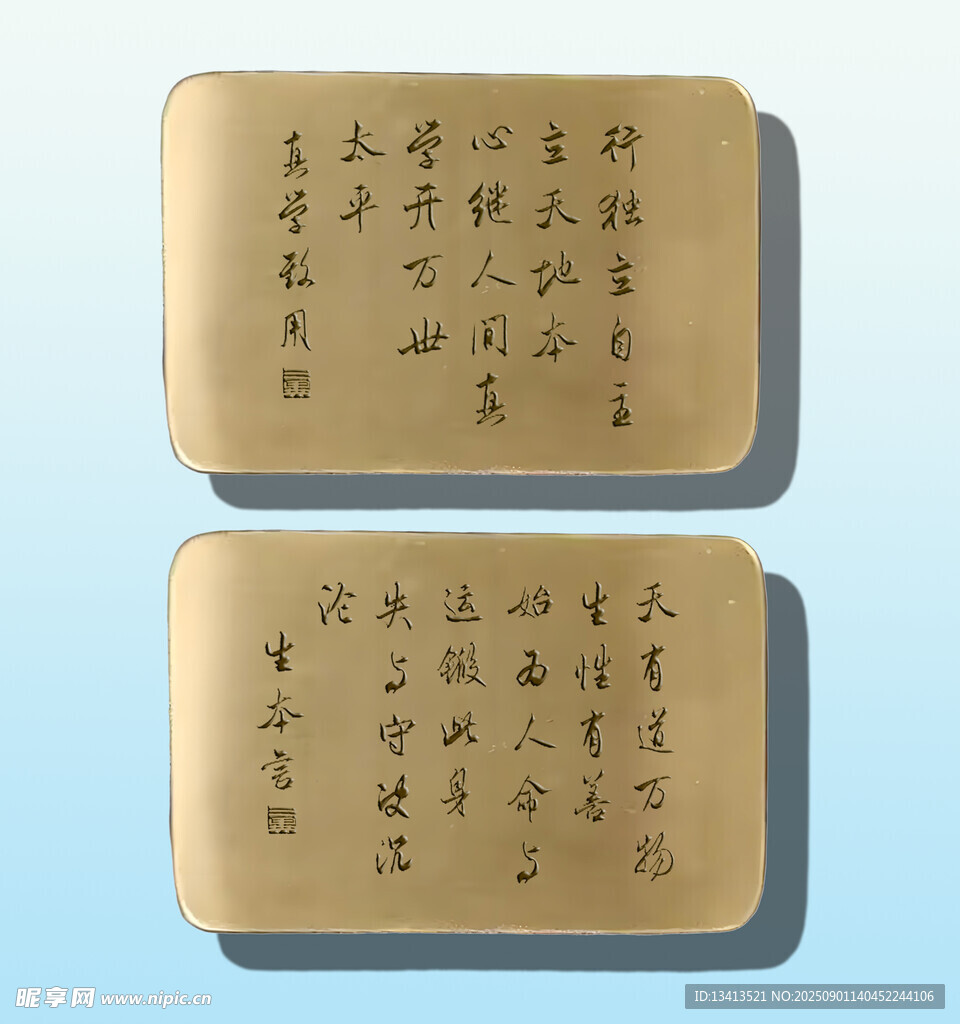 行独立自主
立天地本
心继人间真
学开万世
太平
真学致用
天有道万物
生性有善
始为人命与
运锻此身
失与守沉
沦
生本言
昵享网 www.nipic.cn
ID:13413521 NO:20250901140452244106